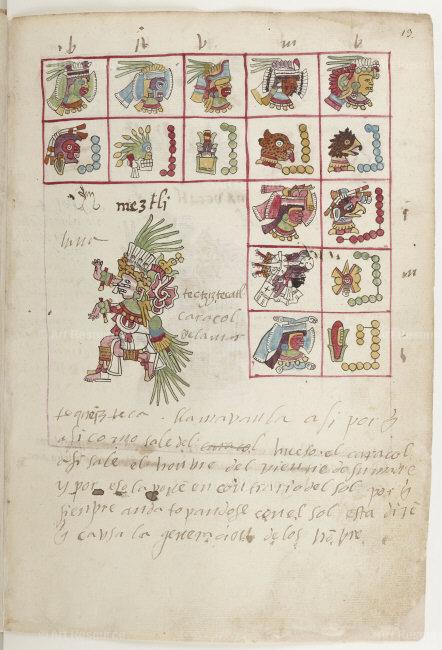 13.
b n b m b
meztli
luna
tecziztecatl
caracol
de la mar
llamavanla asi por q
asi como sale del caracol hueso el caracol
asi sale el honbre del vientre de su madre
y por eso la ponen en contrario del sol por q
siempre anda topandose con el sol esta dize
q causa la generacion de los honbre